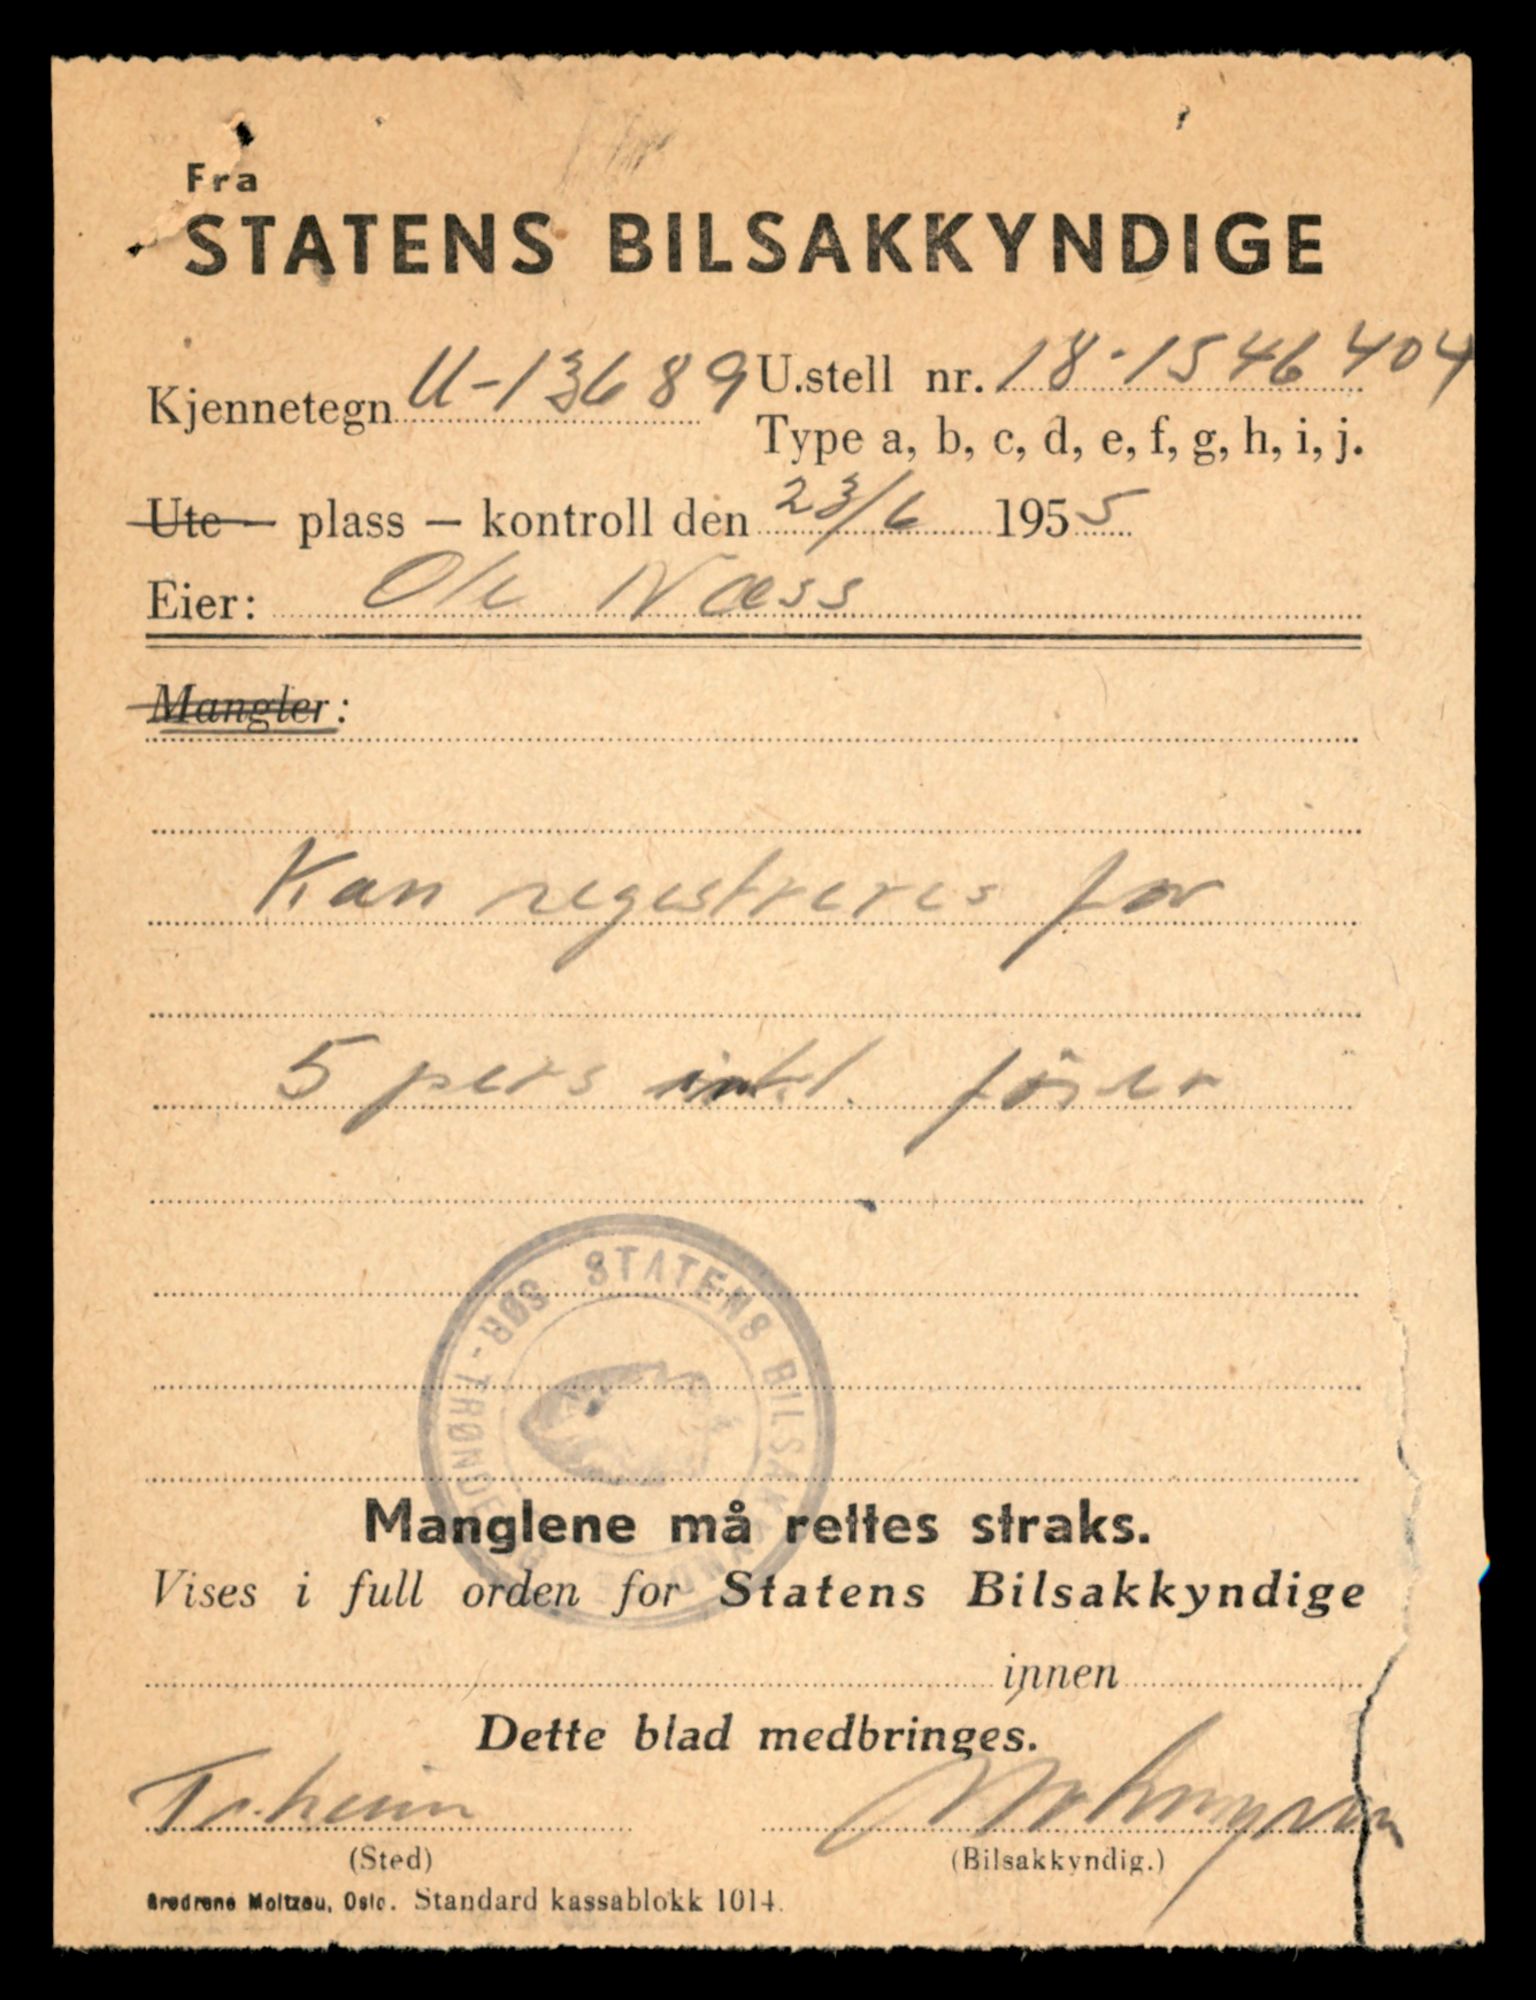 Fra
STATENS BILSAKKYNDIGE
Kjennetegn U-13689 U.stell nr. 18-1546404
Type a, b, c, d, e, f, g, h, i, j.
Ute — plass — kontroll den 23/6 1955
Eier: Ole Næss
Mangler:
Kan registreres for
5 pers inkl. fører
STATENS BILSAKKYNDIGE SØR-TRØNDELAG
Manglene må rettes straks.
Vises i full orden for Statens Bilsakkyndige
innen
Dette blad medbringes.
Tr.heim
(Sted) (Bilsakkyndig.)
Brødrene Moltzau, Oslo. Standard kassablokk 1014.